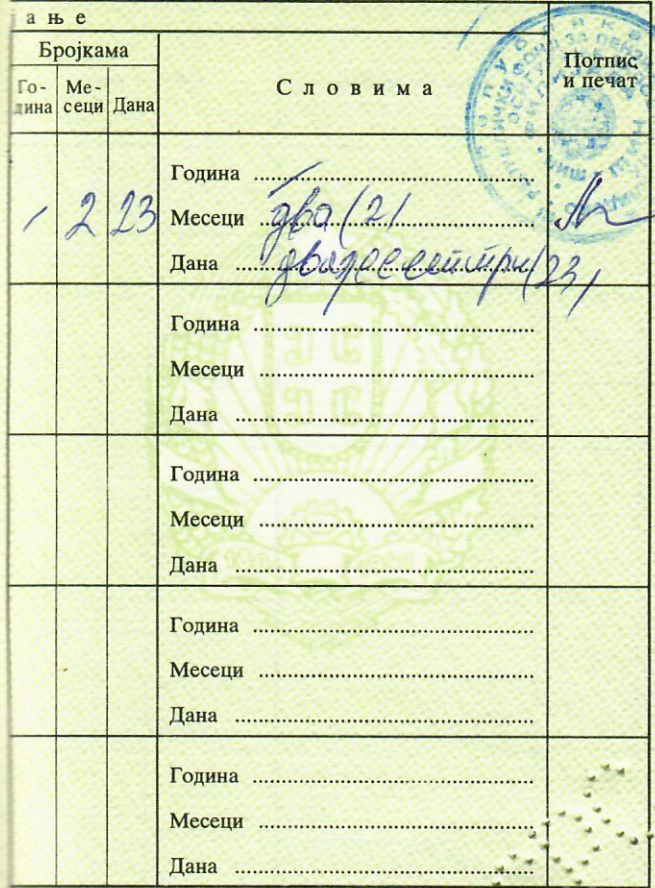 ање
Бројкама
Словима
Потпис и печат
Година
Месеци
Дана
/ 2 23
Година /
Месеци два (2)
Дана двадесеттри (23)
Година
Месеци
Дана
Година
Месеци
Дана
Година
Месеци
Дана
Година
Месеци
Дана